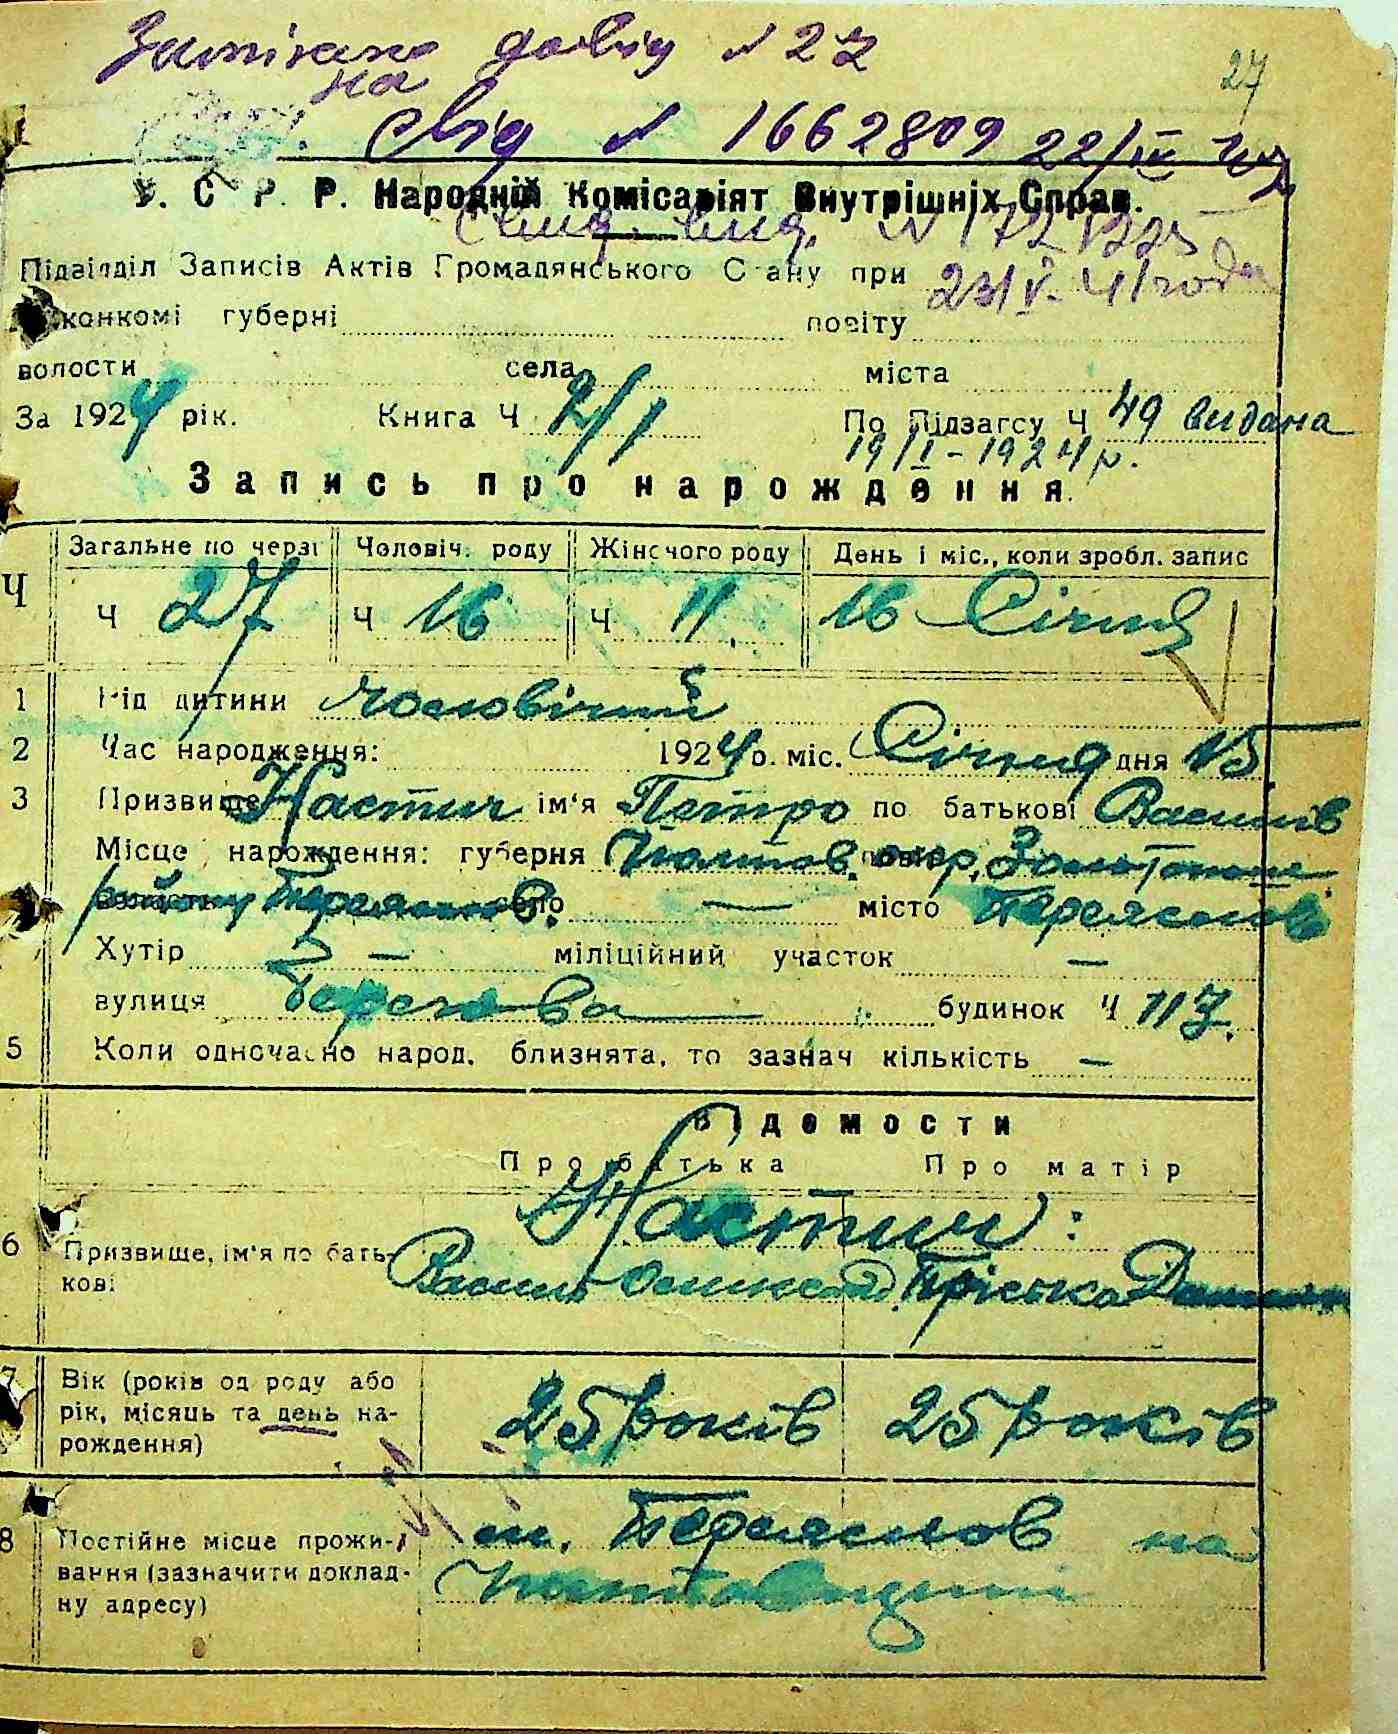 довід № 27
на
27
свід № 1662809 22/IX
У. С. Р. Р. Народній Комісаріят Внутрішніх Справ.
№
Підвідділ Записів Актів Громадянського Стану при 23/V. 41 года
конкомі губерні повіту
волости села міста
За 1924 рік. Книга Ч 2/1 По Підзагсу Ч 49 видана
19/I-1924 р.
Запись про нарождення.
Загальне по черзі Чоловіч. роду Жіночого роду День і міс., коли зробл. запис
Ч Ч 27 Ч 16 Ч 11 16 Січня
1 Рід дитини чоловічий
2 Час народження: 1924 р. міс. Січня дня 15
3 Призвище Настич ім'я Петро по батькові Василів
Місце нарождення: губерня Полтав. окр. Золотоноше
району Переяслов. село — місто Переяслов
Хутір — міліційний участок —
вулиця Берегова будинок Ч 117.
5 Коли одночасно народ. близнята, то зазнач кількість —
Відомости
Про батька Про матір
Настич:
6 Призвище, ім'я по бать- Василь Пріська
кові
7 Вік (років од роду або
рік, місяць та день на- 25 років 25 років
рождення)
8 Постійне місце прожи- м. Переяслов на
вання (зазначити доклад- Полтавщині
ну адресу)